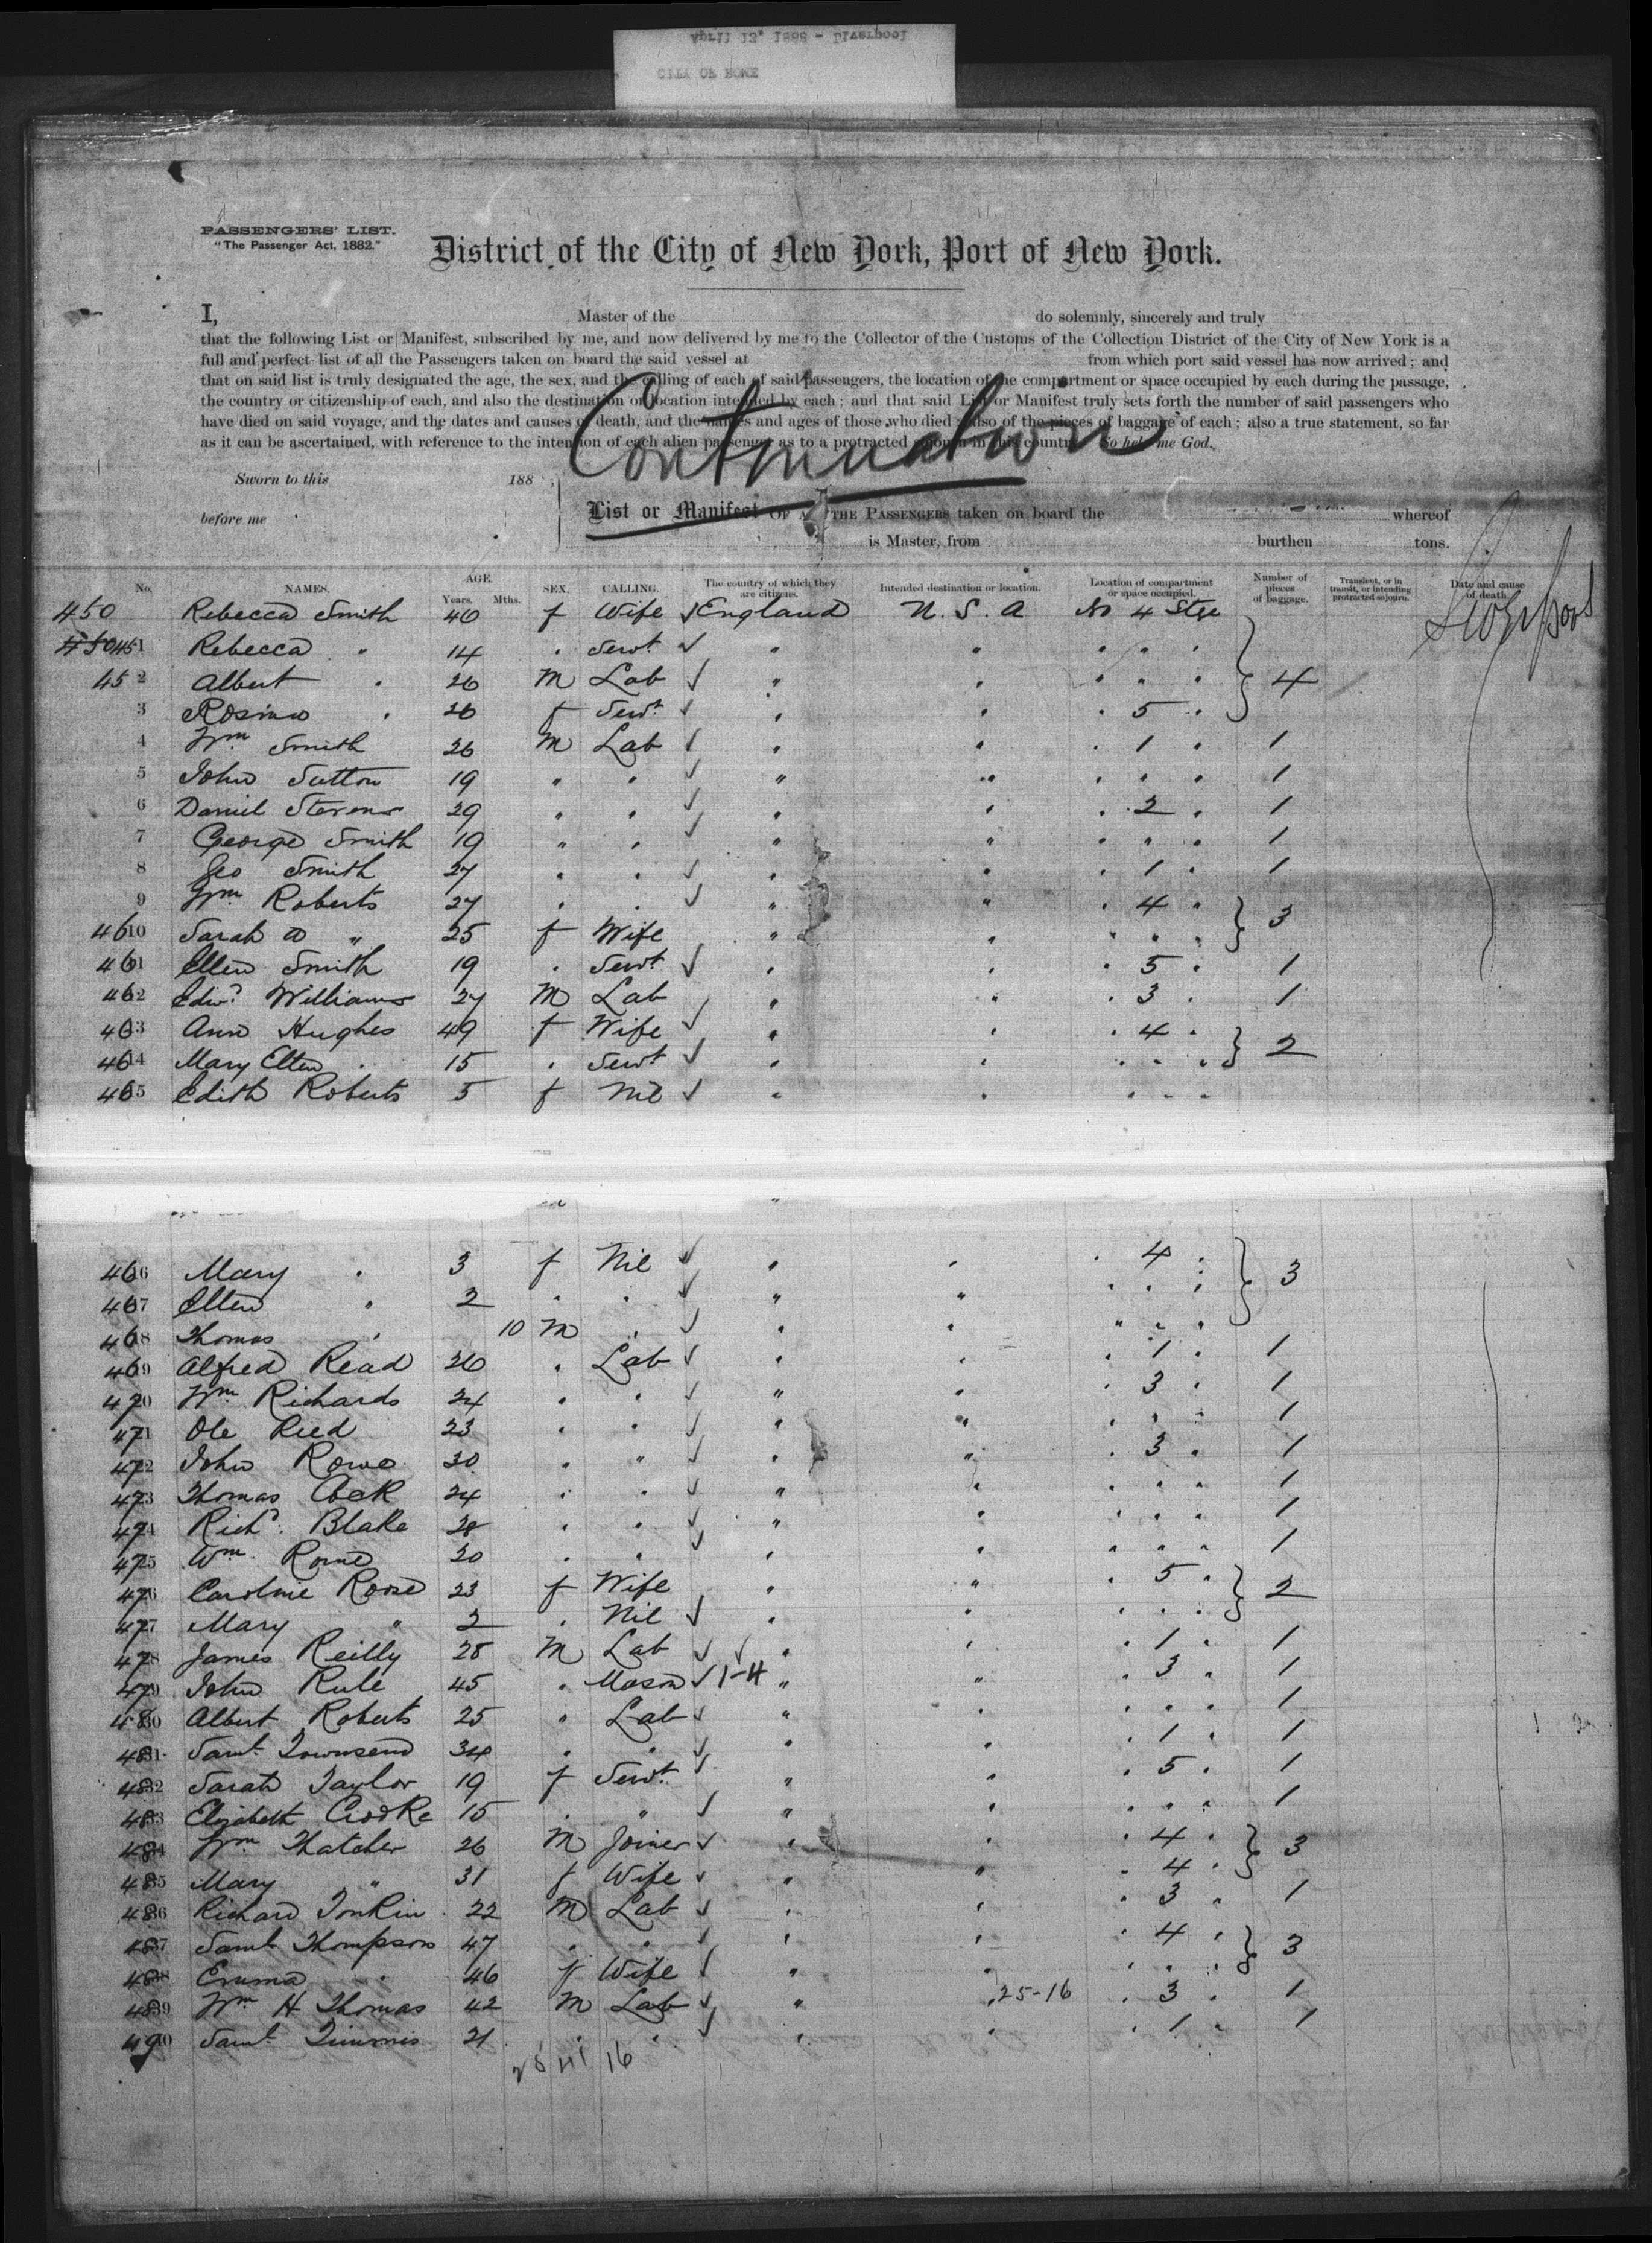 April 12" 1888 - Liverpool
CITY OF ROME
PASSENGERS' LIST.
"The Passenger Act, 1882."
District of the City of New York, Port of New York.
I, Master of the do solemnly, sincerely and truly
that the following List or Manifest, subscribed by me, and now delivered by me to the Collector of the Customs of the Collection District of the City of New York is a
full and perfect list of all the Passengers taken on board the said vessel at from which port said vessel has now arrived; and
that on said list is truly designated the age, the sex, and the calling of each of said passengers, the location of the compartment or space occupied by each during the passage,
the country or citizenship of each, and also the destination or location intended by each; and that said List or Manifest truly sets forth the number of said passengers who
have died on said voyage, and the dates and causes of death, and the names and ages of those who died; also of the pieces of baggage of each; also a true statement, so far
as it can be ascertained, with reference to the intention of each alien passenger as to a protracted sojourn in this country. So help me God.
Continuation
Sworn to this 188 ;
before me
List or Manifest OF ALL THE PASSENGERS taken on board the whereof
is Master, from burthen tons.
No. NAMES. AGE. Years. Mths. SEX. CALLING. The country of which they are citizens. Intended destination or location. Location of compartment or space occupied. Number of pieces of baggage. Transient, or in transit, or intending protracted sojourn. Date and cause of death.
Liverpool
450 Rebecca Smith 40 f Wife ✓ England U. S. A No 4 Stge
451 Rebecca " 14 " Servt ✓ " " " " "
452 Albert " 20 M Lab ✓ " " " " " } 4
3 " 20 f Servt ✓ " " " 5 "
4 Wm Smith 26 M Lab ✓ " " " 1 " 1
5 John Sutton 19 " " ✓ " " " " " 1
6 Daniel Stevens 29 " " ✓ " " " 2 " 1
7 George Smith 19 " " ✓ " " " " " 1
8 Geo Smith 27 " " ✓ " " " 1 " 1
9 Wm Roberts 27 " " ✓ " " " 4 " } 3
460 Sarah " 25 f Wife " " " " "
461 Ellen Smith 19 " Servt ✓ " " " 5 " 1
462 Edwd Williams 27 M Lab ✓ " " " 3 " 1
463 Ann Hughes 49 f Wife ✓ " " " 4 " } 2
464 Mary Ellen " 15 " Servt ✓ " " " " "
465 Edith Roberts 5 f Nil ✓ " " " " "
466 Mary " 3 f Nil ✓ " " " 4 " } 3
467 Ellen " 2 " " ✓ " " " " "
468 Thomas " 10 M " ✓ " " " " "
469 Alfred Read 20 " Lab ✓ " " " 1 " 1
470 Wm Richards 24 " " ✓ " " " 3 " 1
471 Ole Reed 23 " " ✓ " " " " " 1
472 John Rowe 30 " " ✓ " " " 3 " 1
473 Thomas Cock 24 " " ✓ " " " " " 1
474 Richd Blake 28 " " ✓ " " " " " 1
475 Wm Rowe 20 " " ✓ " " " " " 1
476 Caroline 23 f Wife " " " 5 " } 2
477 Mary " 2 " Nil ✓ " " " " "
478 James Reilly 28 M Lab ✓ ✓ " " " 1 " 1
479 John Rule 45 " Mason ✓ 1-4 " " " 3 " 1
480 Albert Roberts 25 " Lab ✓ " " " " " 1
481 Saml Townsend 34 " " " " " 1 " 1
482 Sarah Taylor 19 f Servt ✓ " " " 5 " 1
483 Elizabeth Crooke 15 " " ✓ " " " " " 1
484 Wm Thatcher 26 M Joiner ✓ " " " 4 " } 3
485 Mary " 31 f Wife ✓ " " " 4 "
486 Richard Tonkin 22 M Lab ✓ " " " 3 " 1
487 Saml Thompson 47 " " ✓ " " " 4 " } 3
488 Emma " 46 f Wife ✓ " " " " "
489 Wm H Thomas 42 M Lab ✓ " " 25-16 " 3 " 1
490 Saml Timmis 21 " " ✓ " " " 1 " 1
16